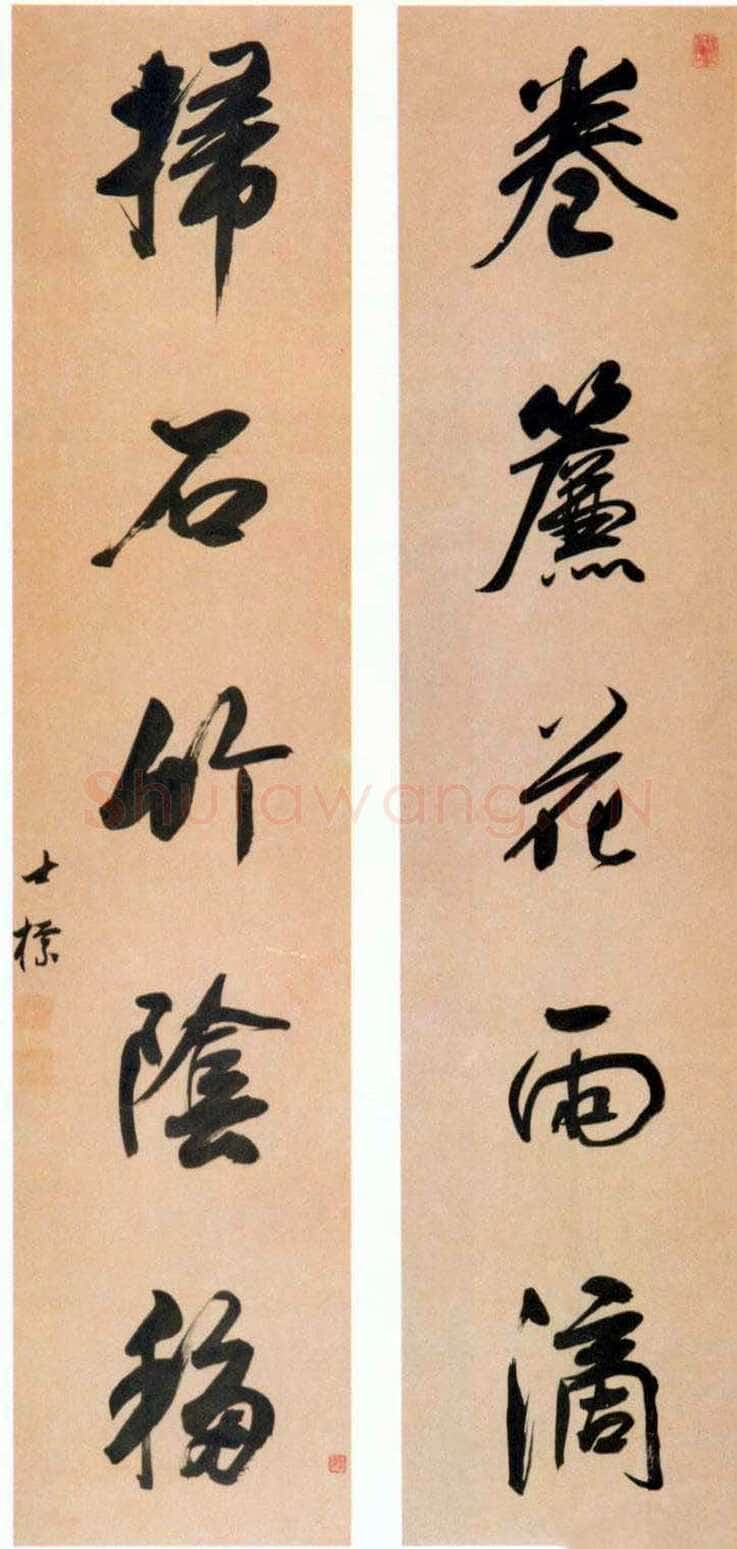 卷簾花雨滴
掃石竹陰移
士標
Shufawang.CN